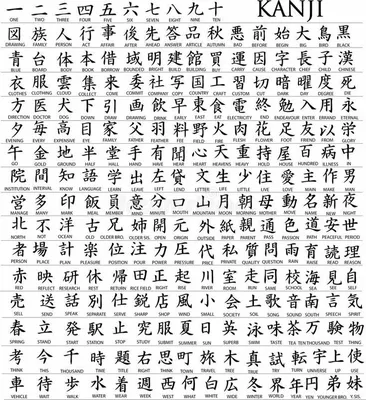 一 二 三 四 五 六 七 八 九 十 KANJI
ONE TWO THREE FOUR FIVE SIX SEVEN EIGHT NINE TEN
図 族 人 行 事 後 先 答 品 秋 悪 前 始 大 鳥 黒
DRAWING FAMILY PERSON ACT AFFAIR AFTER AHEAD ANSWER ARTICLE AUTUMN BAD BEFORE BEGIN BIG BIRD BLACK
青 台 体 本 借 域 明 建 館 買 運 因 字 長 子 漢
BLUE BOARD BODY BOOK BORROW BRIGHT BUILD BUILDING BUY CARRY CAUSE CHARACTER CHIEF CHILD CHINESE
衣 服 雲 集 来 委 社 写 国 工 習 切 暗 曜 度 死
CLOTHES CLOTHING CLOUD COLLECT COME COMMIT COMPANY COPY COUNTRY CRAFT CUT DARK
方 医 犬 下 引 画 飲 早 東 食 電 終 勉 入 用 永
DIRECTION DOCTOR DOG DOWN DRAW DRINK EARLY EAST EAT ELECTRICITY END ENDEAVOUR ENTER ETERNAL
夕 毎 高 目 家 父 羽 料 野 火 肉 花 足 友 以
EVENING EVERY EXPENSIVE EYE FAMILY FATHER FEATHER FEE FIELD FIRE FLESH FLOWER FOOT FRIEND FROM
金 地 半 堂 手 有 聞 心 天 重 持 屋 百 病 中
GO GOLD GROUND HALF HALL HAND HAVE HEAR HEART HEAVEN HEAVY HOLD HOUSE HUNDRED ILLNESS IN
院 間 知 語 学 出 左 文 生 少 住 愛 主 作 男
INSTITUTION INTERVAL KNOW LANGUAGE LEARN LEAVE LEFT LEND LETTER LIFE LITTLE LIVE LOVE MAIN MAKE MAN
営 多 印 飯 員 意 分 口 山 月 朝 母 動 名 新 夜
MANAGE MANY MARK MEAL MEMBER MIND MINUTE MOUTH MOUNTAIN MOON MORNING MOTHER MOVE NAME NEW NIGHT
北 不 洋 古 姉 開 元 外 紙 親 通 色 道 安 世
NORTH NOT OCEAN OLD OLDER BRO. OLDER SIS. OPEN ORIGIN OUTSIDE PAPER PARENT PASS PASSION PATH PEACEFUL PERIOD
者 場 計 楽 位 注 力 圧 代 私 質 問 雨 育 読 理
PERSON PLACE PLAN PLEASURE POSITION POUR POWER PRESSURE PRICE PRIVATE QUALITY QUESTION RAIN RAISE READ REASON
赤 映 研 休 帰 田 正 起 川 室 走 同 校 海 見 自
RED REFLECT RESEARCH REST RETURN RICE FIELD RIGHT RISE RIVER ROOM RUN SAME SCHOOL SEA SEE SELF
売 送 話 別 仕 鋭 店 風 小 会 土 歌 音 南 言 気
SELL SEND SPEAK SEPARATE SERVE SHARP SHOP WIND SMALL SOCIETY SOIL SONG SOUND SOUTH SAY SPIRIT
春 立 発 駅 止 究 服 夏 日 英 泳 味 茶 万 験 物
SPRING STAND START STATION STOP STUDY SUBMIT SUMMER SUN SUPERB SWIM TASTE TEA TEN THOUSAND TEST THING
考 今 千 時 題 右 思 町 旅 木 真 試 転 宇 上 使
THINK THIS THOUSAND TIME TITLE RIGHT THINK TOWN TRAVEL TREE TRUE TRY TURN UNIVERSE UP USE
車 待 歩 水 着 週 西 何 白 広 冬 界 年 円 弟 妹
VEHICLE WAIT WALK WATER WEAR WEEK WEST WHAT WHITE WIDE WINTER WORLD YEAR YEN YOUNGER BRO. Y. SIS.